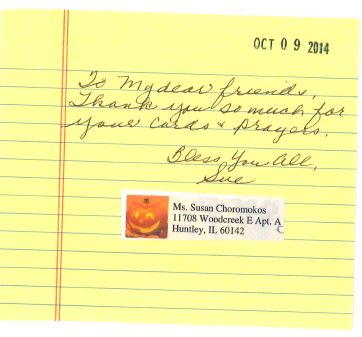 OCT 09 2014
To My dear friends,
Thank you so much for
your cards & prayers.
Bless You All,
Sue
Ms. Susan Choromokos
11708 Woodcreek E Apt. A
C
Huntley, IL 60142